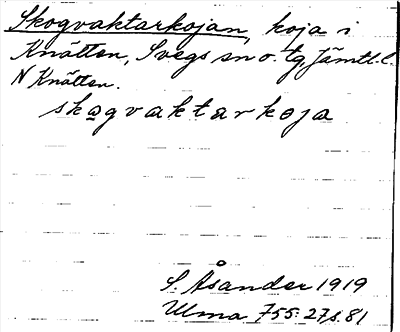 Skogvaktarkojan, koja i
Knätten, Svegs sn o. tg, Jämtl. l.
N Knätten.
skogvaktarkoja
S. Åsander 1919
Ulma 755: 27 s. 81